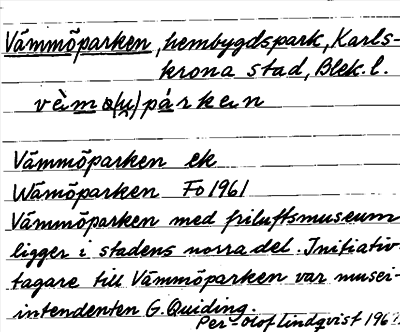 Vämmöparken, hembygdspark, Karls-
krona stad, Blek. l.
Vämmöparken ek
Wämöparken Fo 1961
Vämmöparken med friluftsmuseum
ligger i stadens norra del. Initiativ-
tagare till Vämmöparken var musei-
intendenten G. Quiding.
Per-Olof Lindqvist